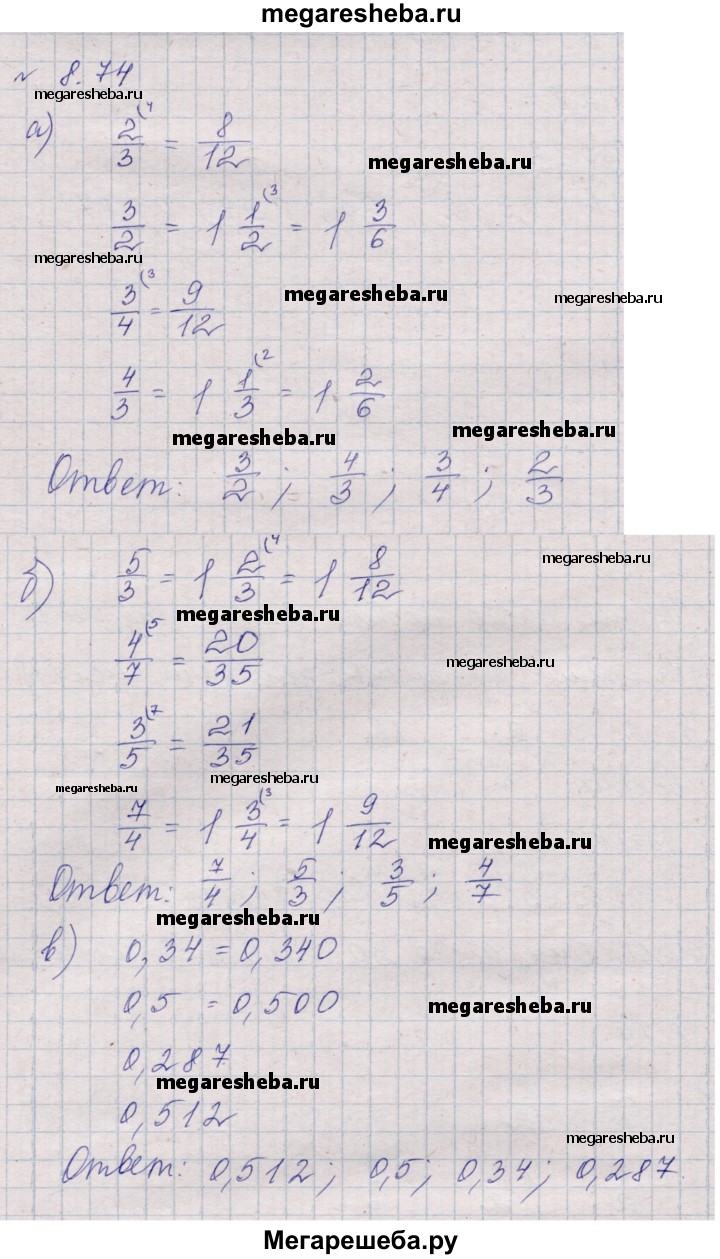 megaresheba.ru
№ 8.74
megaresheba.ru
а) 2/3 (4 = 8/12
megaresheba.ru
3/2 = 1 1/2 (3 = 1 3/6
megaresheba.ru
3/4 (3 = 9/12
megaresheba.ru megaresheba.ru
4/3 = 1 1/3 (2 = 1 2/6
megaresheba.ru megaresheba.ru
Ответ: 3/2; 4/3; 3/4; 2/3
б) 5/3 = 1 2/3 (4 = 1 8/12
megaresheba.ru
megaresheba.ru
4/7 (5 = 20/35
megaresheba.ru
3/5 (7 = 21/35
megaresheba.ru
megaresheba.ru
7/4 = 1 3/4 (3 = 1 9/12
megaresheba.ru
Ответ: 7/4; 5/3; 3/5; 4/7
megaresheba.ru
в) 0,34 = 0,340
0,5 = 0,500
megaresheba.ru
0,287
megaresheba.ru
0,512
megaresheba.ru
Ответ: 0,512; 0,5; 0,34; 0,287.
Мегарешеба.ру